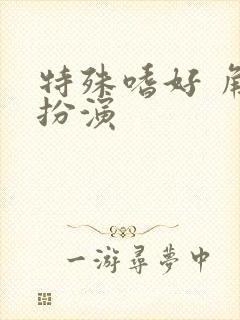 特殊嗜好 角
扮演
一游尋夢中